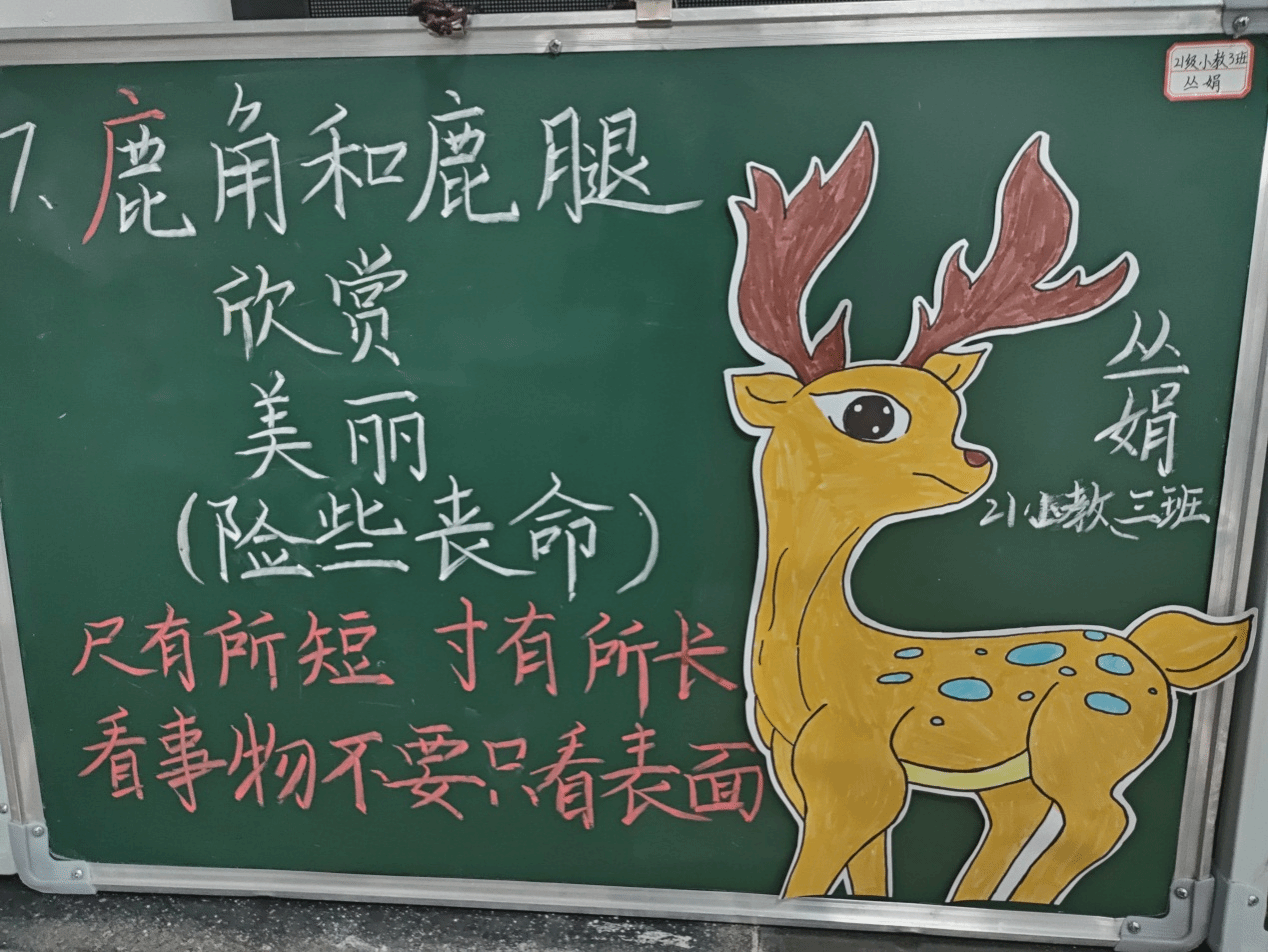 21级小教3班
丛娟
7、鹿角和鹿腿
欣赏
美丽
(险些丧命)
尺有所短 寸有所长
看事物不要只看表面
丛娟
21小教三班